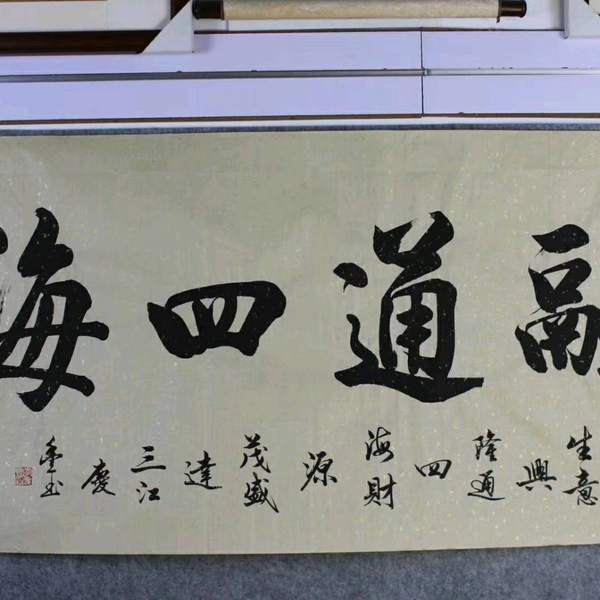 融通四海
生意興隆通四海財源茂盛達三江慶